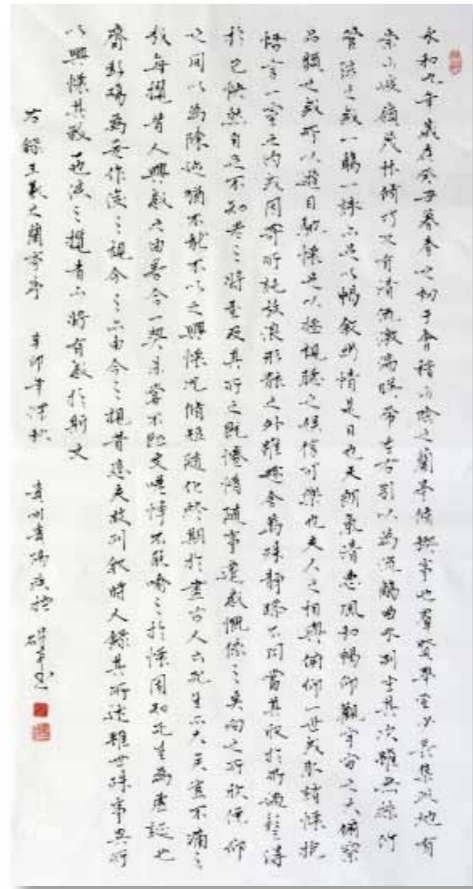 永和九年歲在癸丑暮春之初于會稽山陰之蘭亭脩禊事也羣賢畢至少長咸集此地有
崇山峻嶺茂林脩竹又有清流激湍暎帶左右引以為流觴曲水列坐其次雖無絲竹
管弦之盛一觴一詠亦足以暢叙幽情是日也天朗氣清惠風和暢仰觀宇宙之大俯察
品類之盛所以遊目騁懷足以極視聽之娛信可樂也夫人之相與俯仰一世或取諸懷抱
悟言一室之內或因寄所託放浪形骸之外雖趣舍萬殊靜躁不同當其欣於所遇暫得
於己快然自足不知老之將至及其所之既惓情隨事遷感慨係之矣向之所欣俛仰
之間以為陳迹猶不能不以之興懷况脩短隨化終期於盡古人云死生亦大矣豈不痛
哉每攬昔人興感之由若合一契未嘗不臨文嗟悼不能喻之於懷固知死生為虛誕也
齊彭殤為妄作後之視今亦由今之視昔悲夫故列叙時人錄其所述雖世殊事異所
以興懷其致一也後之攬者亦將有感於斯文
右錄王羲之蘭亭序 辛卯年深秋 貴州貴陽